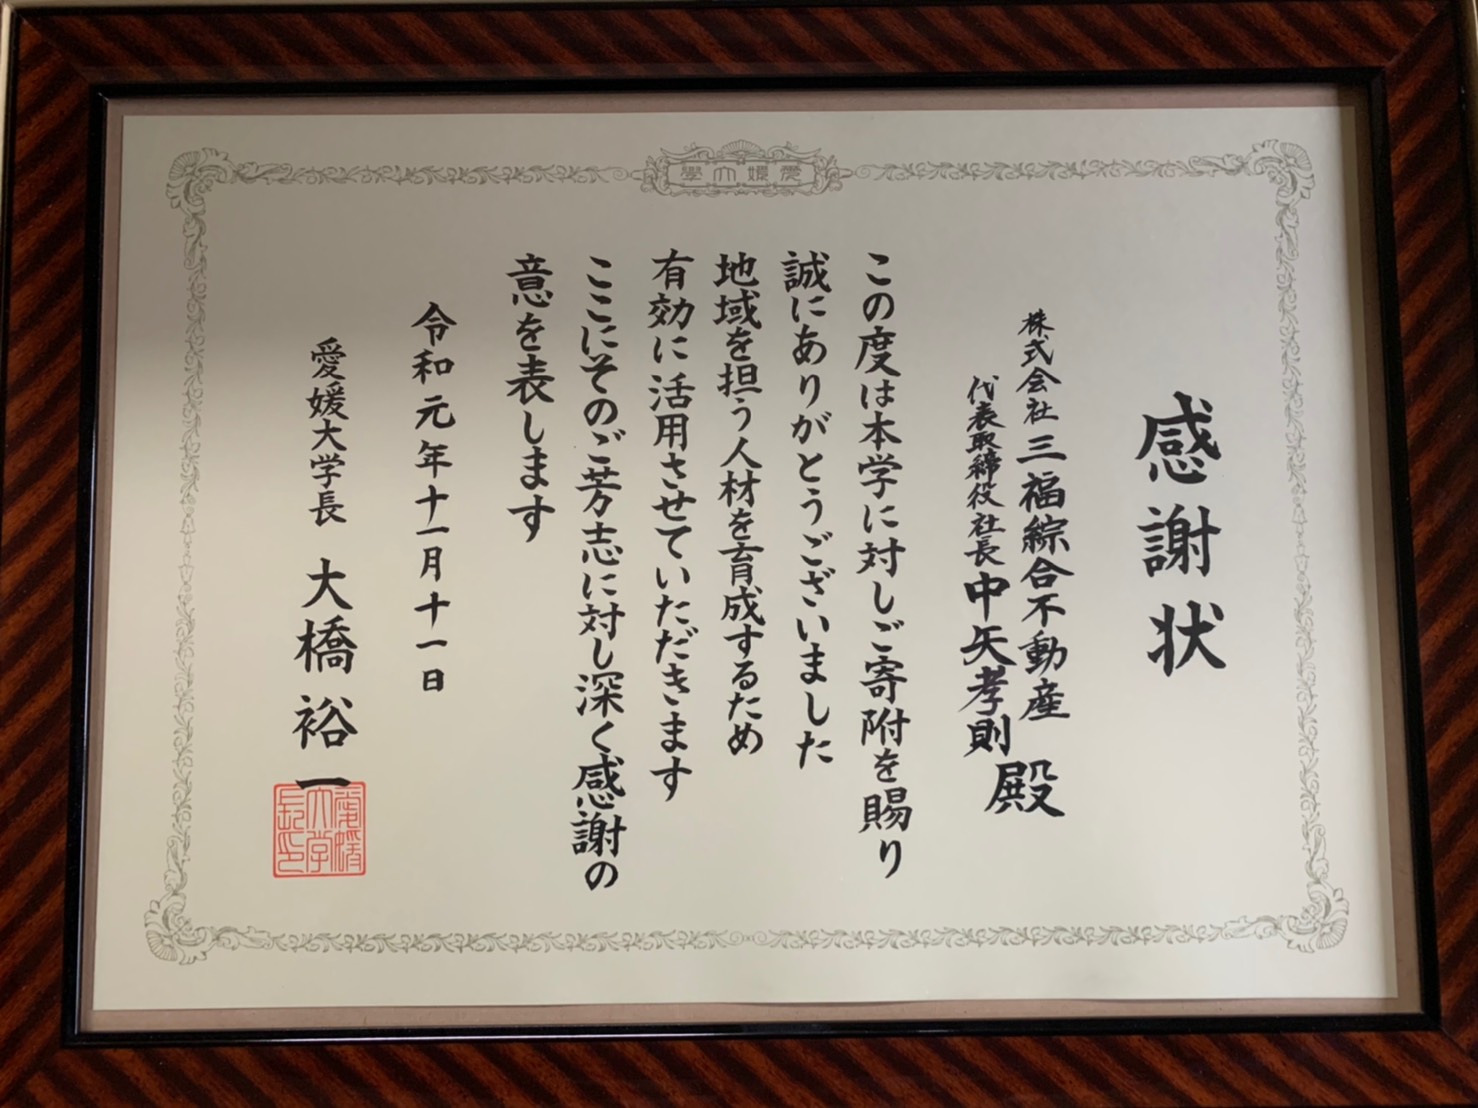 愛媛大學
感謝状
株式会社三福綜合不動産
代表取締役社長中矢孝則殿
この度は本学に対しご寄附を賜り
誠にありがとうございました
地域を担う人材を育成するため
有効に活用させていただきます
ここにそのご芳志に対し深く感謝の
意を表します
令和元年十一月十一日
愛媛大学長 大橋裕一
愛媛
大学
長印